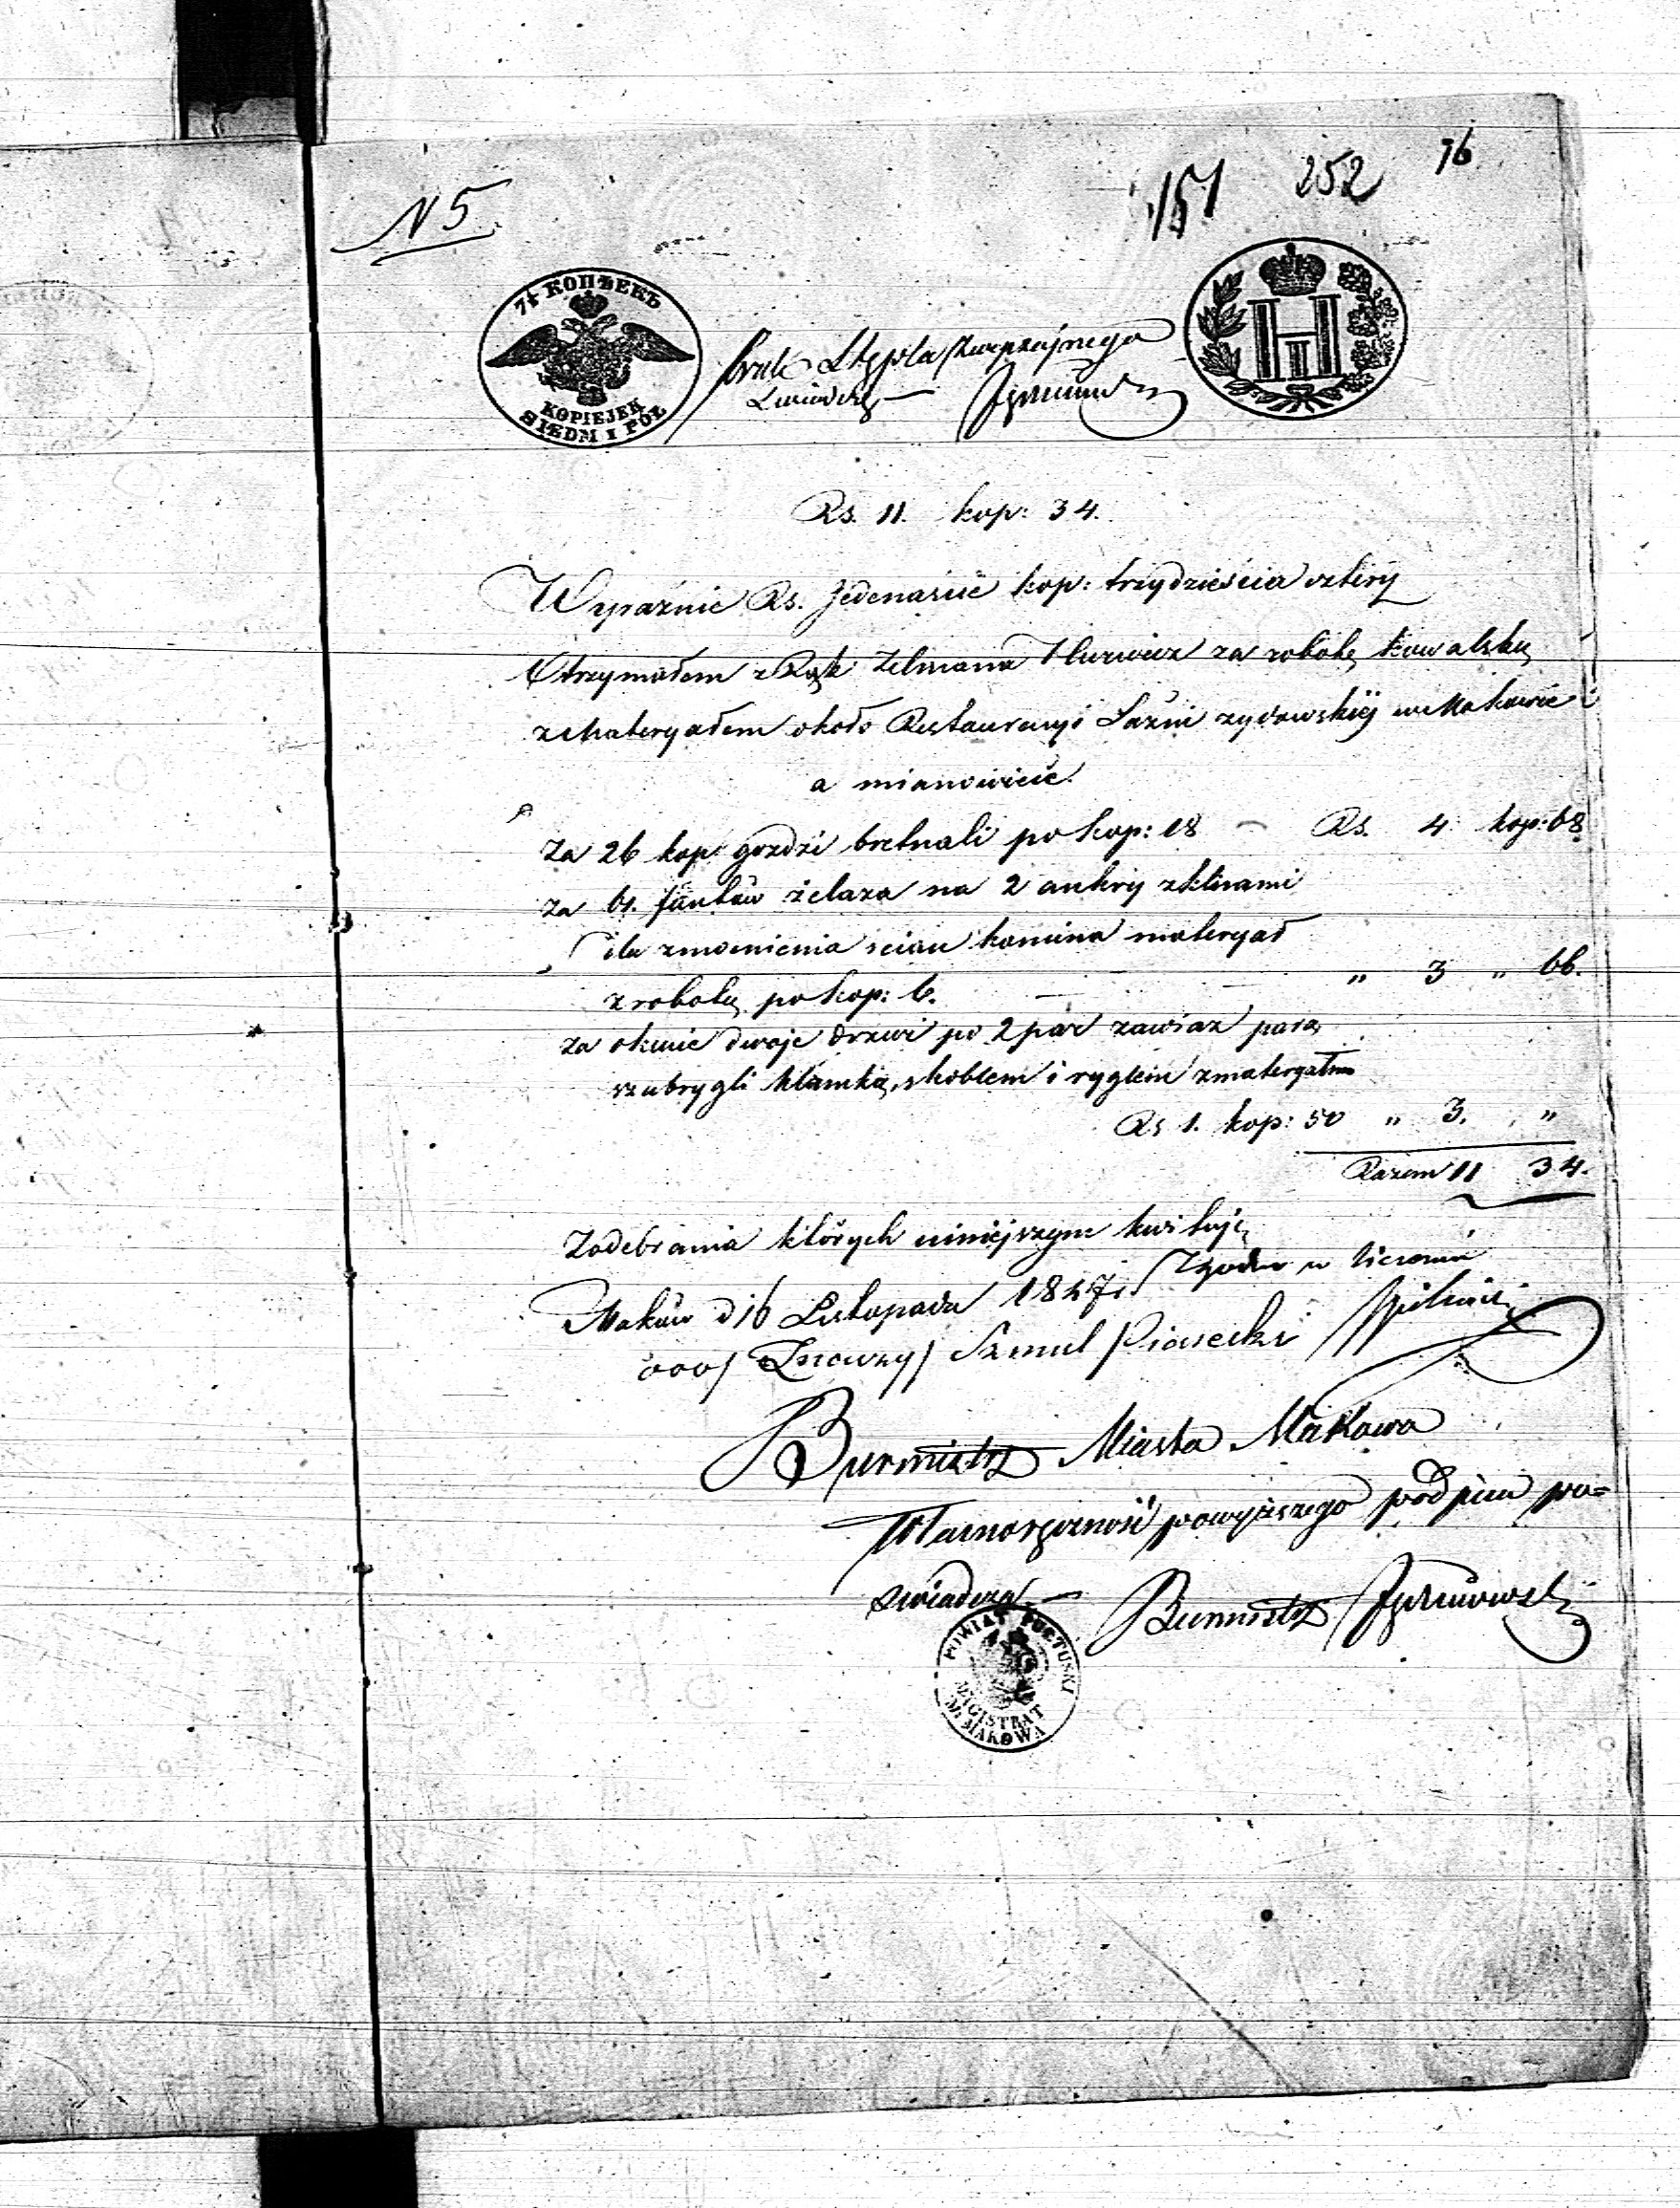 N 5
151 252 76
7½ КОПѢЕКЪ
KOPIEJEK
SIEDM I PÓŁ
Brak Stępla zwyczajnego
Rs. 11. kop: 34.
Wyraźnie Rs. Jedenaście kop: trzydzieścia cztery
Otrzymałem z Rąk Zelmana Hurwicz za robotę kowalską
z Materyałem około Restauracyi Łaźni zydowskiej w Makowie
a mianowicie.
Za 26 kop gozdzi bretnali po kop: 18 – Rs. 4 kop: 68
za 61. funtów żelaza na 2 ankry
dla zmocnienia scian komina materyał
z robotą po kop: 6. — " 3 " 66.
za okucie dwoje drzwi po 2 par zawias parą
szubrygli klamką, skoblem i ryglem z materyałem
Rs 1. kop: 50 " 3. "
Razem 11 34.
Z odebrania których niniejszym kwituję
Maków d 16 Listopada 1847 r. Zgodno w
ooo/ Znowzy/ Szmul Piasecki
Burmistrz Miasta Makowa
Własnoręczność powyższego podpisu po=
świadcza. — Burmistrz
POWIAT PUŁTUSKI
MAGISTRAT
M. MAKOWA